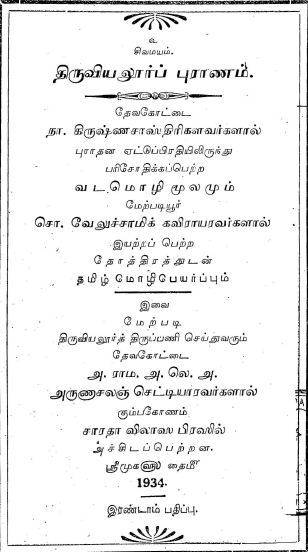 உ
சிவமயம்.
திருவியலூர்ப் புராணம்.
தேவகோட்டை
நா. கிருஷ்ணசாஸ்திரிகளவர்களால்
புராதன ஏட்டுப்பிரதியிலிருந்து
பரிசோதிக்கப்பெற்ற
வடமொழி மூலமும்
மேற்படியூர்
சொ. வேலுச்சாமிக் கவிராயரவர்களால்
இயற்றப் பெற்ற
தோத்திரத்துடன்
தமிழ் மொழிபெயர்ப்பும்
இவை
மேற்படி
திருவியலூர்த் திருப்பணி செய்துவரும்
தேவகோட்டை
அ. ராம, அ. லெ. அ.
அருணாசலஞ் செட்டியாரவர்களால்
கும்பகோணம்
சாரதா விலாஸ பிரஸில்
அச்சிடப்பெற்றன.
ஸ்ரீமுகஸ்ரீ தைமீ
1934.
இரண்டாம் பதிப்பு.